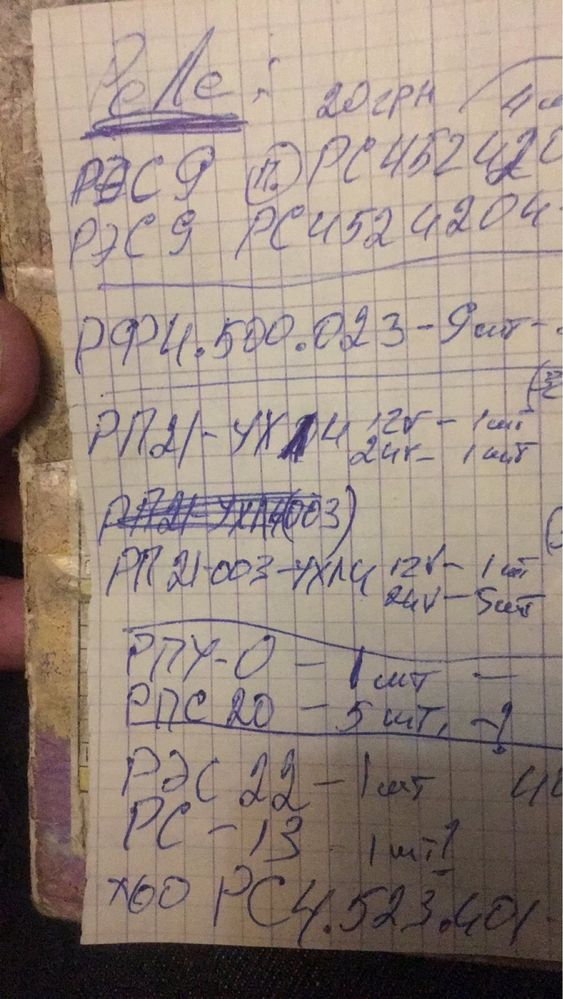 Реле:
20грн 4
РЭС9 (П.) РС452420
РЭС9 РС4524204-
РФ4.500.023-9шт-
РП21-УХЛ4 12v- 1шт
24v- 1шт
РП21-УХЛ4(003)
РП21-003-УХЛ4 12v- 1шт
24v-5шт
РПУ-0 - 1шт -
РПС20 - 5шт. -?
РЭС22-1шт 44
РС-13 - 1шт?
х60 РС4.523.401-